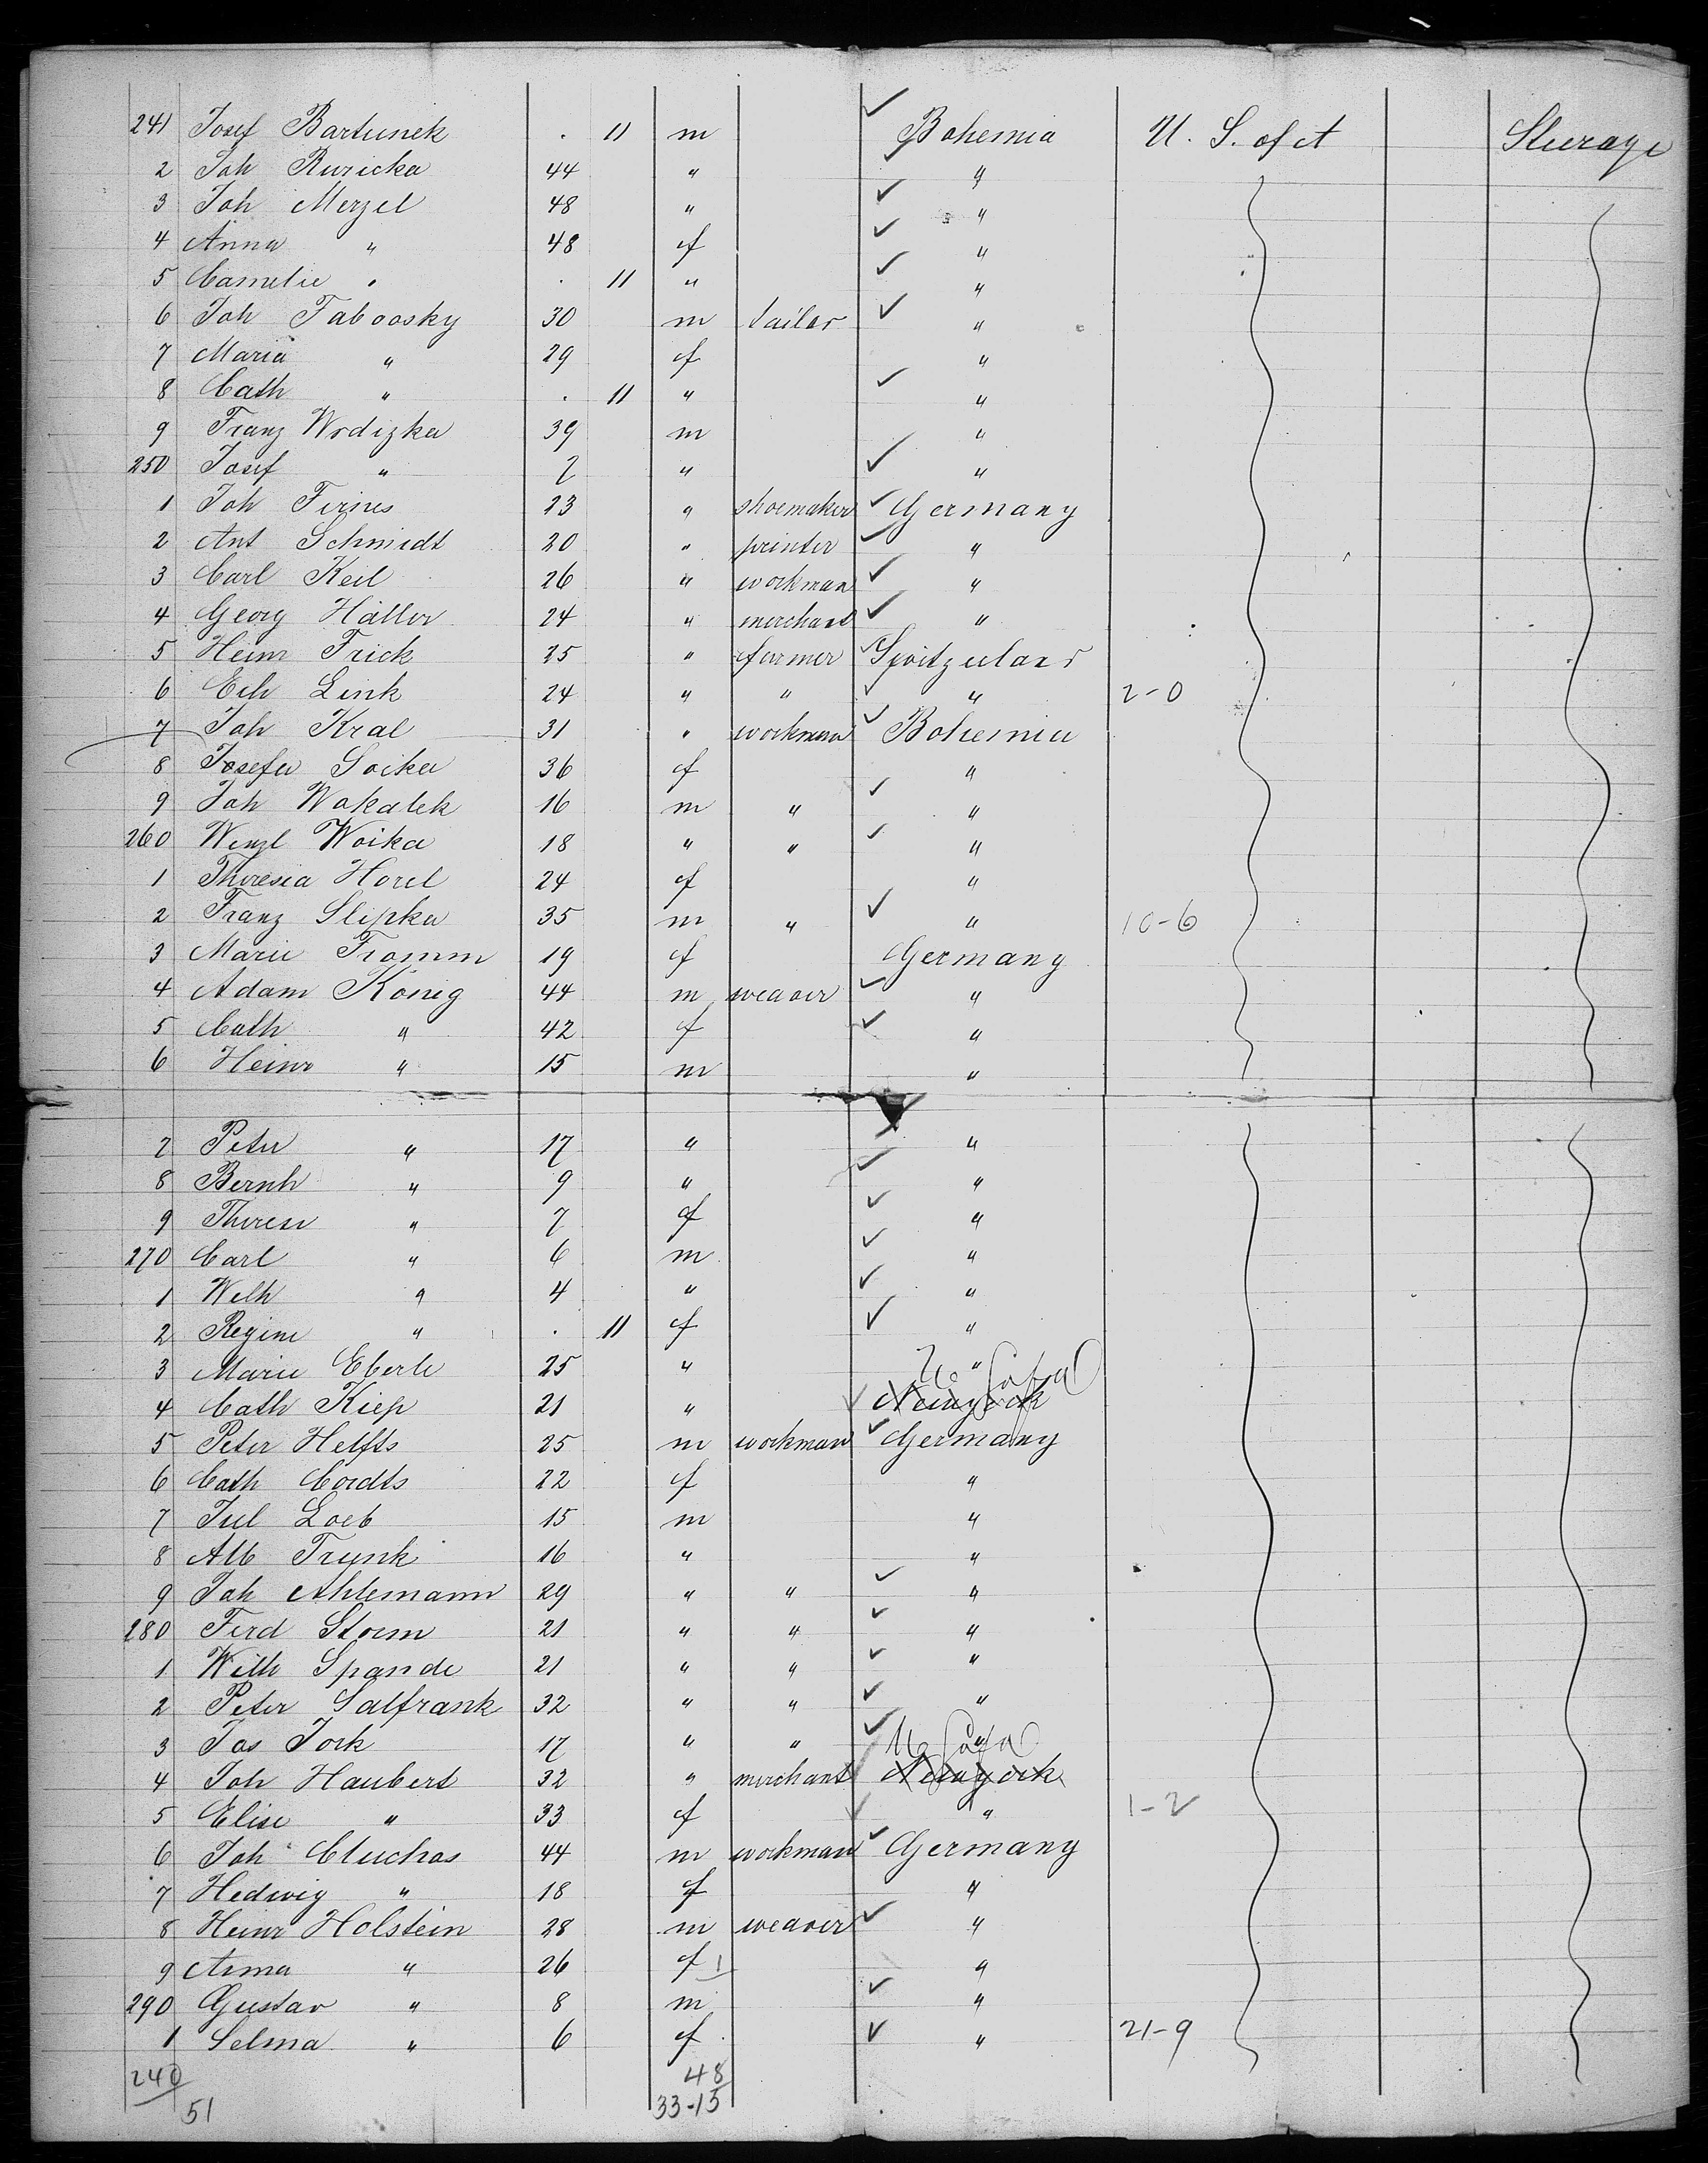 241 Josef Bartunek . 11 m Bohemia U. S. of A Steerage
2 Joh Ruricka 44 " "
3 Joh Merzel 48 " "
4 Anna " 48 f "
5 Camelie " . 11 " "
6 Joh Taboosky 30 m tailor "
7 Maria " 29 f "
8 Cath " . 11 " "
9 Franz Wrdizka 39 m "
250 Josef " 7 " "
1 Joh Firnes 23 " shoemaker Germany
2 Ant Schmidt 20 " printer "
3 Carl Keil 26 " workman "
4 Georg Häller 24 " merchant "
5 Heinr Frick 25 " farmer
6 Link 24 " " " 2-0
7 Joh Kral 31 " workman Bohemia
8 Josefa Soika 36 f "
9 Joh Wokalek 16 m " "
260 Wenzl Woika 18 " " "
1 Theresia Horel 24 f "
2 Franz Slipka 35 m " " 10-6
3 Marie Fromm 19 f Germany
4 Adam König 44 m weaver "
5 Cath " 42 f "
6 Heinr " 15 m "
7 Peter " 17 " "
8 Bernh " 9 " "
9 Therese " 7 f "
270 Carl " 6 m "
1 Welh " 4 " "
2 Regine " . 11 f "
3 Marie Eberle 25 " "
4 Cath Kiep 21 " Newyork
5 Peter Helfts 25 m workman Germany
6 Cath Cordts 22 f "
7 Jul Loeb 15 m "
8 Alb Trunk 16 " "
9 Joh Ahlemann 29 " " "
280 Ferd Storm 21 " " "
1 Wilh Spande 21 " " "
2 Peter Salfrank 32 " " "
3 Jos Jork 17 " " "
4 Joh Haubert 32 " merchant Newyork
5 Elise " 33 f " 1-2
6 Joh Cluchas 44 m workman Germany
7 Hedwig " 18 f "
8 Heinr Holstein 28 m weaver "
9 Anna " 26 f 1 "
290 Gustav " 8 m "
1 Selma " 6 f " 21-9
240 48
51 33-15